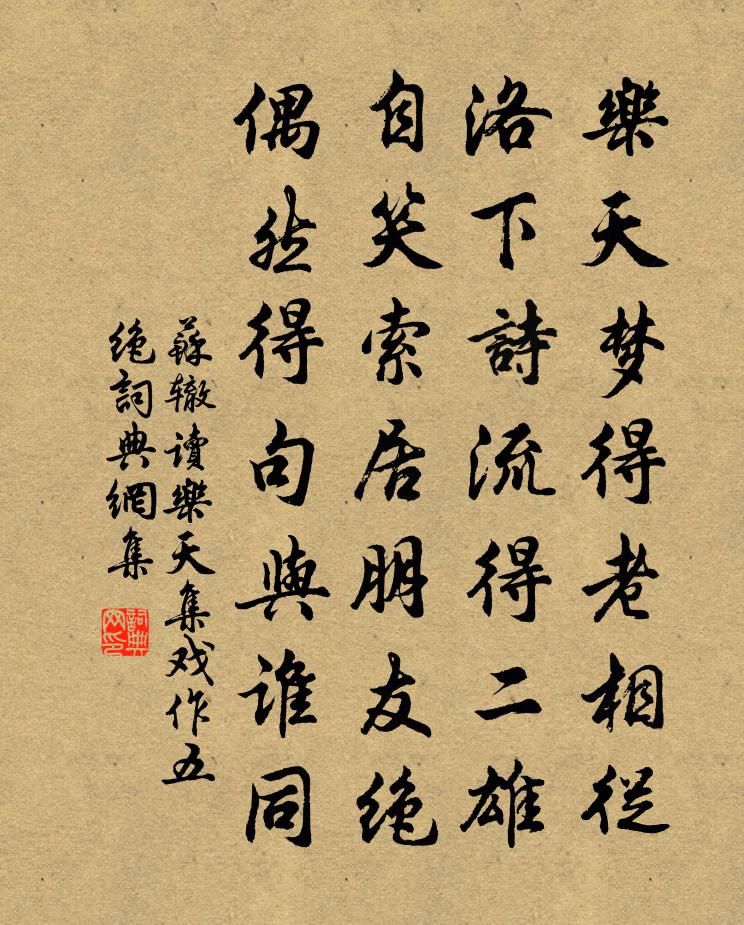 樂天梦得老相從
洛下詩流得二雄
自笑索居朋友絶
偶然得句與誰同
蘇辙讀樂天集戏作五
绝詞典網集
詞典网印